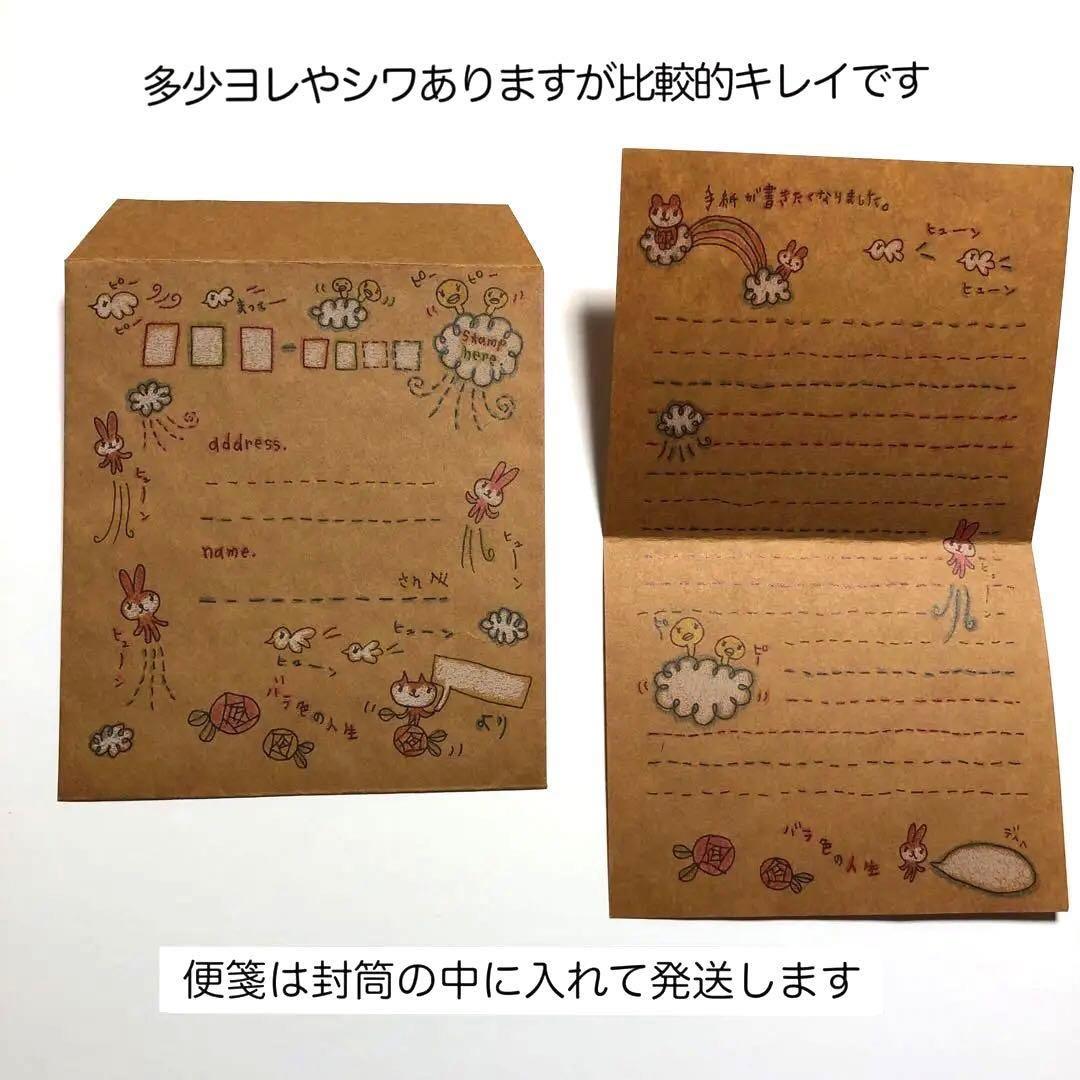 多少ヨレやシワありますが比較的キレイです
ピー
ピー
まってー
ピー
ピー
stamp
here
address.
ヒューン
ヒューン
name.
さんへ
ヒューン
ヒューン
ヒューン
バラ色の人生
より
手紙が書きたくなりました。
ヒューン
ヒューン
ヒューン
ピー
ピー
バラ色の人生
便箋は封筒の中に入れて発送します